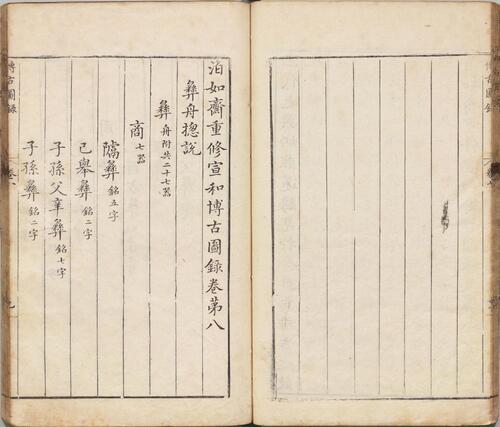 泊如齋重修宣和博古圖錄卷第八
彝舟摠說
彝 舟附共二十七器
商 七器
隲彝 銘五字
己舉彝 銘二字
子孫父辛彝 銘七字
子孫彝 銘二字
博古圖錄